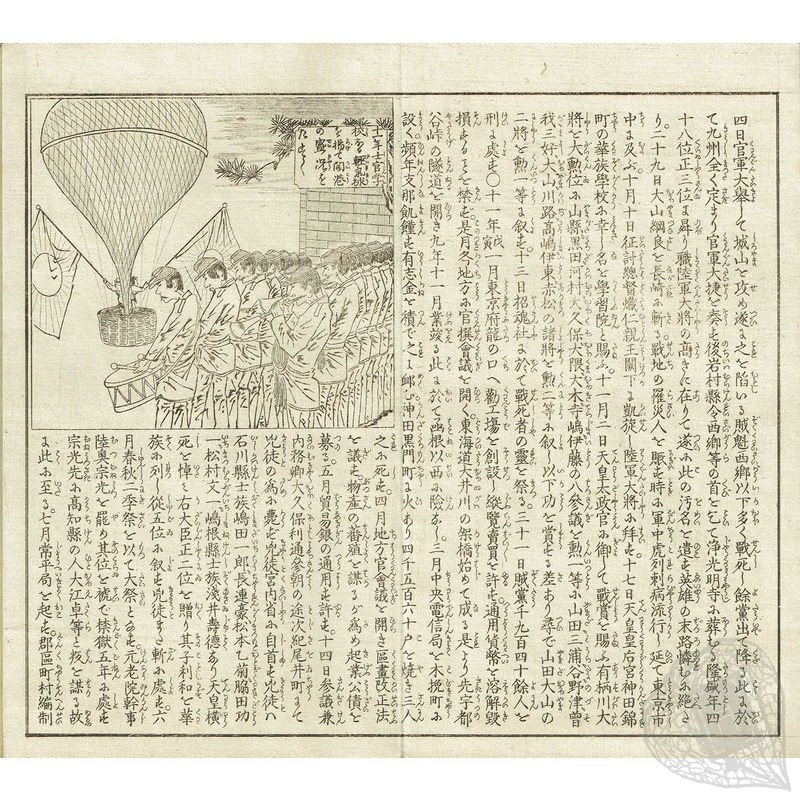 四日官軍大擧して城山を攻め遂に之を陷いる賊魁西郷以下多く戰死し餘黨出て降る此に於
て九州全く定まり官軍大捷を奏も後岩村縣令西郷等の首を乞て浄光明寺に葬むる隆盛年四
十八位正三位に昇り職陸軍大將の高きに在りて遂に此の汚名を遺も英雄の末路憐もに絶さ
り二十九日大山綱良を長崎に斬も戰地の罹災人を賑も時に軍中虎列刺病流行し延て東京市
中に及ぶ十月十日征討總督熾仁親王闕下に凱旋し陸軍大將に拜も十七日天皇皇后宮神田錦
町の華族學校に幸し名を學習院と賜ふ十一月二日天皇太政官に御して戰賞を賜ふ有栖川大
將を大勲位に山縣黒田河村大久保大隈大木寺嶋伊藤の八參議を勲一等に山田三浦谷野津曾
我三好大山川路高嶋伊東赤松の諸將を勲二等に叙し以下功を賞も差あり尋で山田大山の
二將を勲一等に叙も十三日招魂社に於て戰死者の靈を祭る三十一日賊黨千九百四十餘人を
刑に處も〇十一年戊寅一月東京府龍の口へ勸工塲を創設し縱覽賣買を許も通用貨幣を溶解毀
損もることを禁も是月各地方に官撰會議を開く東海道大井川の架橋始めて成る是より先宇都
谷峠の隧道を開き九年十一月業竣る此に於て函根以西に險なし三月中央電信局を木挽町に
設く頻年支那飢饉も有志金を積て之を䘏む神田黒門町に火あり四千五百六十戸を燒き三人
之に死も四月地方官會議を開き區畫改正法
を議も物産の蕃殖を謀るが爲め起業公債を
募る五月貿易銀の通用を許も十四日參議兼
内務卿大久保利通參朝の途次紀尾井町にて
兇徒の爲に斃も兇徒宮内省に自首も兇徒ハ
石川縣士族嶋田一郎長連豪杉本乙菊脇田功
一杉村文一嶋根縣士族淺井壽德なり天皇横
死を悼を右大臣正二位を贈り其子利和を華
族に列し從五位に叙も兇徒まさ斬に處も六
月春秋二季祭を以て大祭となも元老院幹事
陸奥宗光を罷め其位を褫て禁獄五年に處も
宗光先に高知縣の人大江卓等と核を謀る故
に此に至る七月常平局を起も郡區町村編制
十一年士官学
校にて輕氣球
を揚て開港
の盛況を